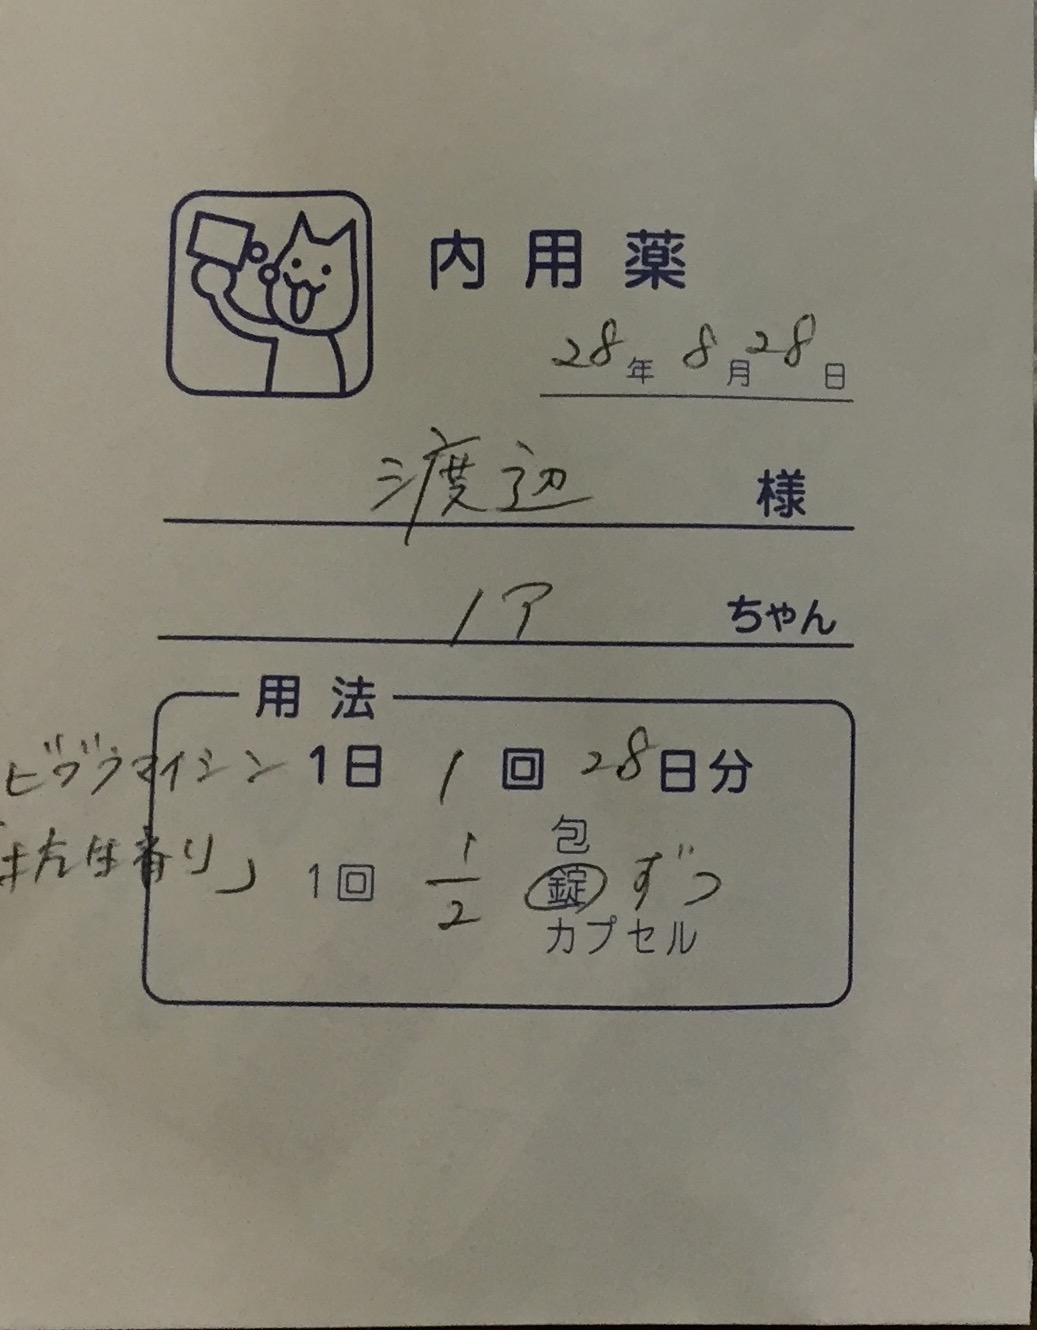 内用薬
28年 8月28日
渡辺 様
ノア ちゃん
用法
ビブラマイシン 1日 1 回 28日分
または香り」 1回 1/2 包 錠 カプセル ずつ